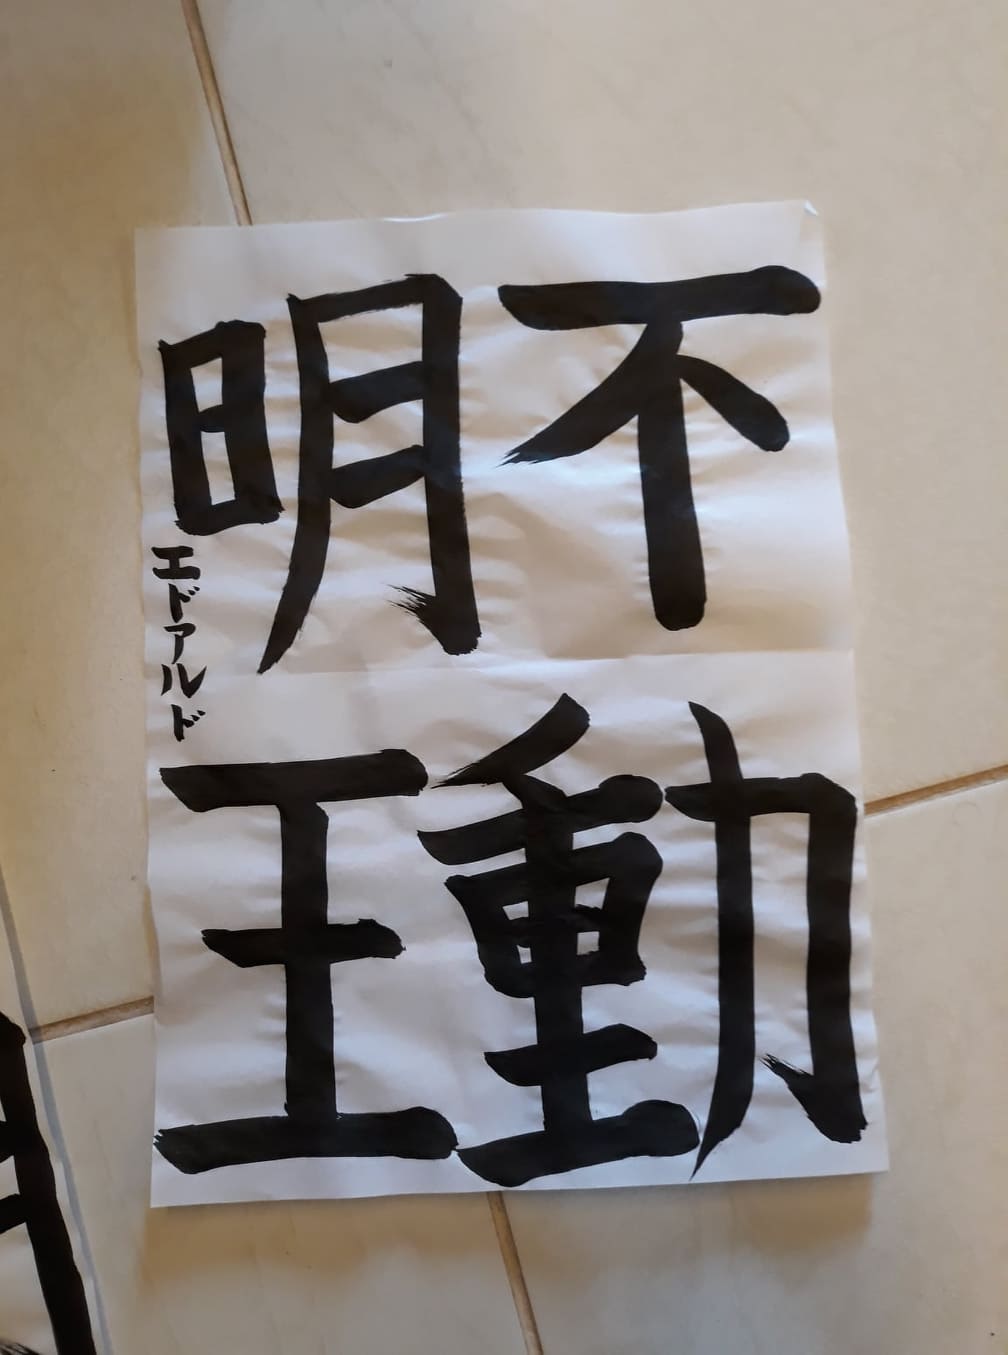 不動
明王
エドアルド